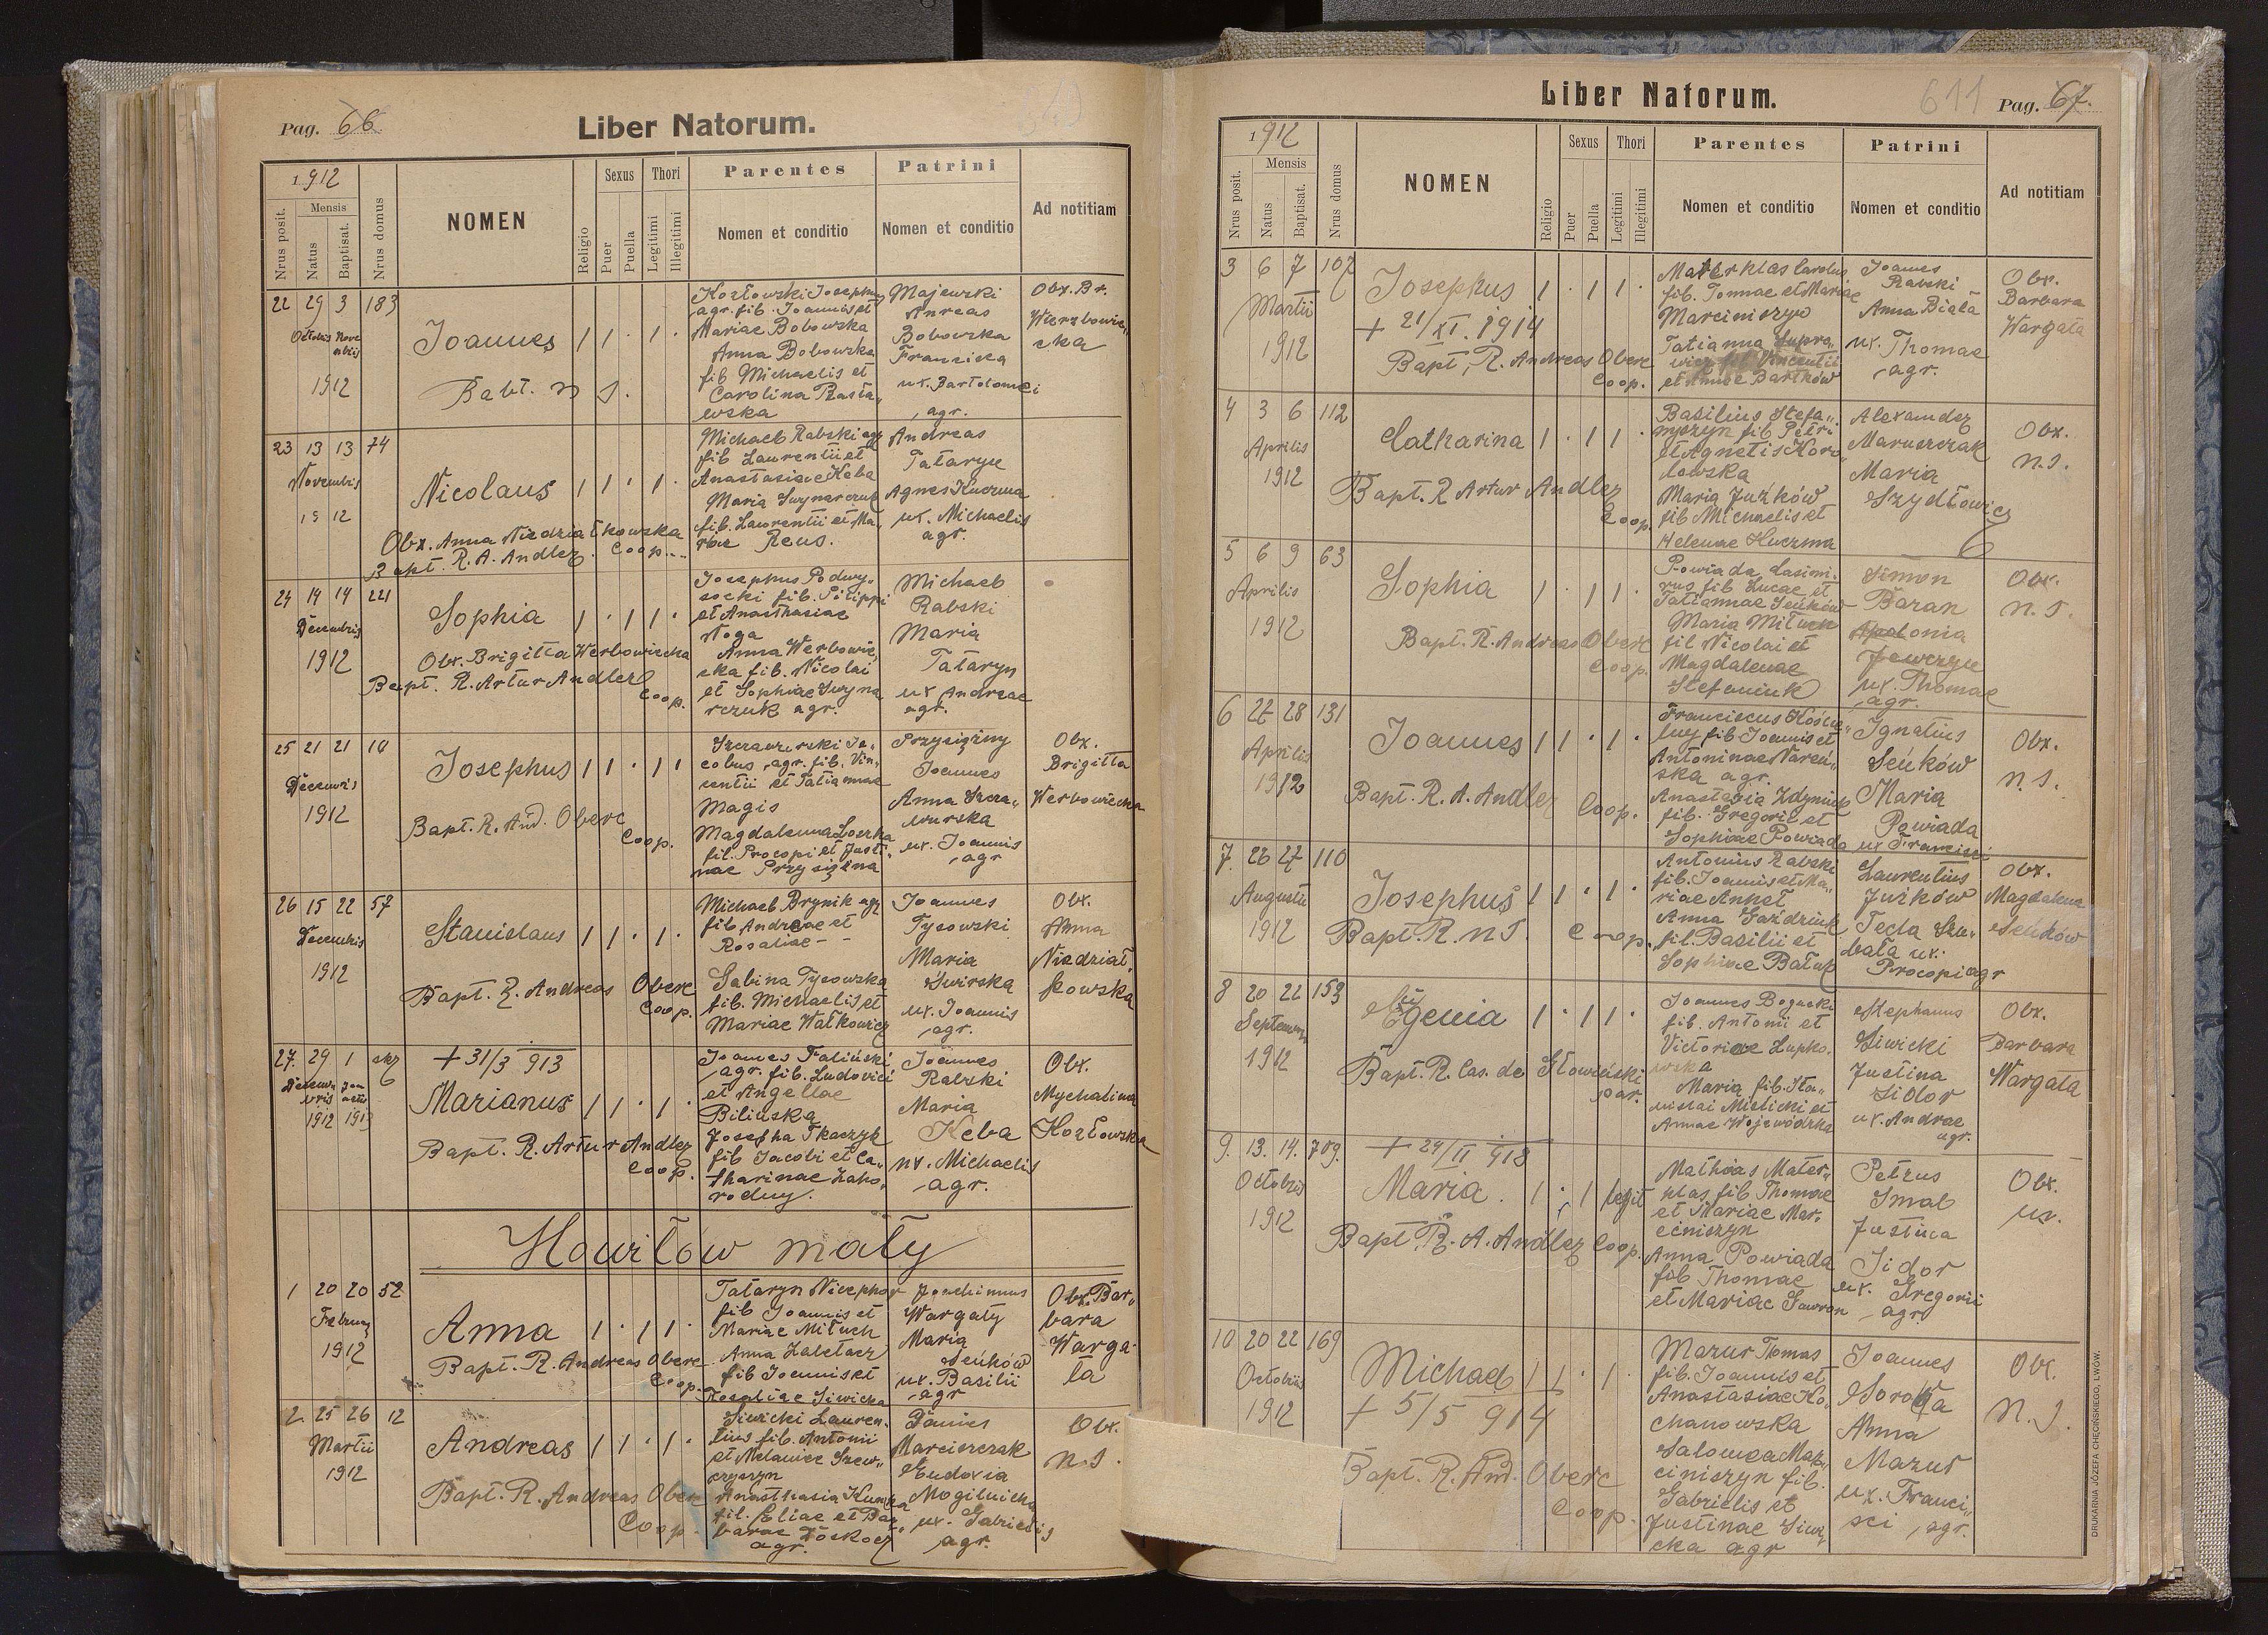 Pag. 66
Liber Natorum.
1912
Nrus posit.
Mensis
Natus
Baptisat.
Nrus domus
NOMEN
Religio
Sexus
Puer
Puella
Thori
Legitimi
Illegitimi
Parentes
Nomen et conditio
Patrini
Nomen et conditio
Ad notitiam
22 29 3 183
Octobris Novembris
1912
Joannes 1 1 · 1 ·
Babt. n s.
Kozłowski Josephus
agr. fil. Joannis et
Mariae Bobowska
Anna Bobowska
fil Michaelis et
Carolina
Majewski
Anreas
Bobowska
Francisca
ux. Bartolomei
agr.
Obx. Br.
23 13 13 74
Novembris
1912
Nicolaus 1 1 · 1 ·
Obx. Anna Niedziałkowska
Bapt. R. A. Andlez. Coop.
Michael Rabski agr
fil Laurentii et
Anastasiae Keba
Maria
fil. Laurentii et Ma„
riae Reus.
Andreas
Tataryn
Agnes Kuczma
ux. Michaelis
agr.
24 14 14 221
Decembris
1912
Sophia 1 · 1 1 ·
Obx. Brigitta Werbowiecka
Bapt. R. Artur Andlez
Coop.
Josephus Podwy„
socki fil. Pilippi
et Anasthasiae
Noga
Anna Werbowie„
cka fil. Nicolai
et Sophiae Swyna
rczuk agr.
Michael
Rabski
Maria
Tataryn
ux Andreae
agr.
25 21 21 10
Decembris
1912
Josephus 1 1 · 1 ·
Bapt. R. And. Oberc
Coop.
cobus, agr. fil. Vin„
centii et Tatiannae
Magis
Magdalenna
fil. Procopi et Justi„
nae Przysiężna
Przysiężny
Joannes
Anna Szcza„
wurska
ux. Joannis
agr
Obx.
Brigitta
Werbowiecka
26 15 22 57
Decembris
1912
Stanislaus 1 1 · 1 ·
Bapt. R. Andreas Oberc
Coop.
Michael Brynik agr
fil Andreae et
Rosaliae - -
Sabina Tysowska
fil. Michaelis et
Mariae Walkowicz
Joannes
Tysowski
Maria
Swirska
ux. Joannis
agr.
Obx.
Anna
Niedział„
kowska
27. 29 1
1912 1913
+ 31/3 913
Marianus 1 1 · 1 ·
Bapt. R. Artur Andlez
Coop.
Joannes Faliński
agr. fil. Ludovici
et Angellae
Bilinska
Josepha Tkaczyk
fil Jacobi et Ca„
tharinae Zaho„
rodny.
Joannes
Rabski
Maria
Keba
ux. Michaelis
agr.
Obx.
Mychalina
Kozłowska
Howiłów mały
1 20 20 52
1912
Anna 1 · 1 1 ·
Bapt. R. Andreas Oberc
Coop.
Tataryn Nicephor
fil Joannis et
Mariae Miluch
Anna
fil Joannis et
Rosaliae Siwicka
Joachimus
Wargaty
Maria
Seńków
ux. Basilii
agr
Obx. Bar„
bara
Warga
ta
2. 25 26 12
Martii
1912
Andreas 1 1 · 1 ·
Bapt. R. Andreas Oberc
Coop.
Siwicki Lauren„
tius fil. Antonii
et Melaniae Szew„
czyszyn
Anasthasia
fil. Eliae et Bar„
barae
agr.
Marciszczak
Eudoxia
Mogilnicka
ux. Gabrielis
agr.
Obx.
n. s.
Liber Natorum.
611
Pag. 67.
1912
Nrus posit.
Mensis
Natus
Baptisat.
Nrus domus
NOMEN
Religio
Sexus
Puer
Puella
Thori
Legitimi
Illegitimi
Parentes
Nomen et conditio
Patrini
Nomen et conditio
Ad notitiam
3 6 7 107
Martii
1912
Josephus 1 · 1 1 ·
+ 21/XI. 1914
Bapt. R. Andreas Oberc
Coop.
Materklas Carolus
fil. Tomae et Mariae
Marciniszyn
Tatianna
et Annae Bartków
Joannes
Rabski
Anna Biała
ux. Thomae
agr.
Obx.
Barbara
Wargata
4 3 6 112
Aprilis
1912
Catharina 1 · 1 1 ·
Bapt. R Artur Andlez
Coop.
Basilius Stefa„
nyszyn fil Petri
et Agnetis Koro„
lowska
Maria Juzków
fil Michaelis et
Helenae Kuczma
Alexander
Maruszczak
Maria
Szydłowicz
Obx.
n. s.
5 6 9 63
Aprilis
1912
Sophia 1 · 1 1 ·
Bapt. R. Andreas Oberc
Coop.
Powiada Casimi„
rus fil Lucae et
Tatiannae Seńków
Maria Miluch
fil Nicolai et
Magdalenae
Stefaniuk
Simon
Baran
Apolonia
ux. Thomae
agr.
Obx.
n. s.
6 27 28 131
Aprilis
1912
Joannes 1 1 · 1 ·
Bapt. R. A. Andlez Coop.
fil Joannis et
ska agr.
fil. Gregorii et
Sophiae Powiada
Ignatius
Seńków
Maria
Powiada
ux Francisci
Obx.
n. s.
7. 26 27 110
Augusti
1912
Josephus 1 1 · 1 ·
Bapt. R. n s. Coop.
Antonius Rabski
fil. Joannis et Ma„
riae
Anna Gaździuk
fil. Basilii et
Sophiae
Laurentius
Juzków
Tecla Sza„
bata ux.
Procopi agr
Obx.
Magdalena
Seńków
8 20 22 153
1912
Eügenia 1 · 1 1 ·
Bapt. R. Cas. de Słowiński
par.
Joannes Bogucki
fil. Antonii et
Victoriae Zupko„
wska
Maria fil. Sta„
nislai Mielicki et
Annae Wojewódzka
Stephanus
Siwicki
Justina
Sidor
ux. Andrae
agr.
Obx.
Barbara
Wargata
9. 13. 14. 709.
Octobris
1912
+ 24/II 918
Maria. 1 · 1 legit
Bapt. R. A. Andlez Coop.
Mathias Mater„
klas fil Thomae
et Mariae Mar„
ciniszyn
Anna Powiada
fil Thomae
et Mariae Sawron
Petrus
Smal
Justina
Sidor
ux. Gregorii
agr
Obx.
ux.
10 20 22 169
Octobris
1912
Michael 1 1 · 1
+ 5/5 914
Bapt. R. And. Oberc
Coop.
Mazur Tomas
fil. Joannis et
Anastasiae Ko„
chanowska
Salomea Mar„
ciniszyn fil.
Gabrielis et
Justinae Siwi„
cka agr
Joannes
Soroka
Anna
Mazur
ux. Franci„
sci, agr.
Obx.
N. S.
DRUKARNIA JÓZEFA CHĘCIŃSKIEGO, LWÓW.